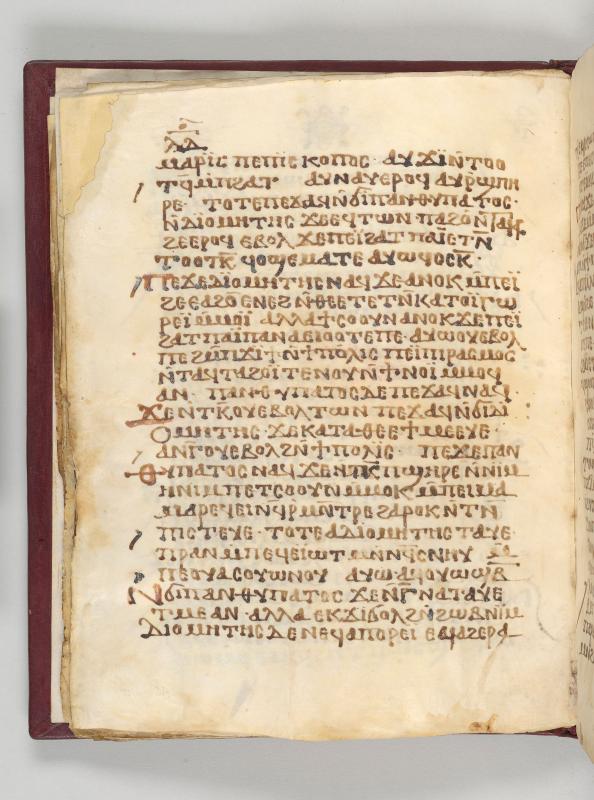 ⲗⲇ̅
ⲙⲁⲣⲓ̅ⲥ ⲡⲉⲡⲓⲥⲕⲟⲡⲟⲥ· ⲁⲩϫⲓⲛ̅ⲧⲟⲟ
ⲧϥ̅ⲙ̅ⲡϩⲁⲧ ⲁⲩⲛⲁⲩⲉⲣⲟϥ ⲁⲩⲣ̅ϣⲡⲏ
ⲣⲉ· ⲧⲟⲧⲉⲡⲉϫⲁϥⲛ̅ϭⲓⲡⲁⲛⲑⲩⲡⲁⲧⲟⲥ·
ⲛ̅ⲇⲓⲟⲙⲏⲧⲏⲥ ϫⲉⲉϥⲧⲱⲛ
ϩⲉⲉⲣⲟϥ ⲉⲃⲟⲗ ϫⲉⲡⲉⲓ̈ϩⲁⲧ ⲡⲁⲓ̈ⲉⲧⲛ̅
ⲧⲟⲟⲧⲕ̅ ϥⲟϣⲉⲙⲁⲧⲉ ⲁⲩⲱϥⲟⲥⲕ·
ⲡⲉϫⲉⲇⲓⲟⲙⲏⲧⲏⲥⲛⲁϥ ϫⲉⲁⲛⲟⲕⲙ̅ⲡⲉⲓ̈
ϩⲉⲉⲁϩⲟⲉⲛⲉϩ ⲛ̅ⲑⲉⲉⲧⲉⲧⲛ̅ⲕⲁⲧⲟⲓ̈ⲅⲱ
ⲣⲉⲓ̈ⲙ̅ⲙⲟⲓ̈ ⲁⲗⲗⲁϯⲥⲟⲟⲩⲛⲁⲛⲟⲕ ϫⲉⲡⲉⲓ̈
ϩⲁⲧ ⲡⲁⲓ̈ⲡⲁⲛⲁⲉⲓⲟⲟⲧⲉⲡⲉ· ⲁⲩⲱⲟⲩⲉⲃⲟⲗ
ⲡⲉϩⲙ̅ⲡϫⲓⲛ̅ϯⲡⲟⲗⲓⲥ ⲡⲉⲓ̈ⲡⲓⲣⲁⲥⲙⲟⲥ
ⲛ̅ⲧⲁϥⲧⲁϩⲟⲓ̈ ⲧⲉⲛⲟⲩ ⲛ̅ϯⲛⲟⲓ̈ ⲙ̅ⲙⲟϥ
ⲁⲛ· ⲡⲁⲛⲑⲩⲡⲁⲧⲟⲥⲇⲉⲡⲉϫⲁϥⲛⲁϥ·
ϫⲉⲛⲧⲕⲟⲩⲉⲃⲟⲗⲧⲱⲛ ⲡⲉϫⲁϥⲛ̅ϭⲓⲇⲓ
ⲟⲙⲏⲧⲏⲥ· ϫⲉⲕⲁⲧⲁⲑⲉⲉϯⲙⲉⲉⲩⲉ·
ⲁⲛⲅ̅ⲟⲩⲉⲃⲟⲗϩⲛ̅ϯⲡⲟⲗⲓⲥ· ⲡⲉϫⲉⲡⲁⲛ
ⲑⲩⲡⲁⲧⲟⲥ ⲛⲁϥ ϫⲉⲛⲧⲕ̅ⲡϣⲏⲣⲉⲛ̅ⲛⲓⲙ
ⲏⲛⲓⲙⲡⲉⲧⲥⲟⲟⲩⲛ ⲙ̅ⲙⲟⲕ ⲙ̅ⲡⲉⲓⲙⲁ
ⲙⲁⲣⲉϥⲉⲓⲛϥⲣ̅ⲙⲛ̅ⲧⲣⲉϩⲁⲣⲟⲕ ⲛ̅ⲧⲛ̅
ⲡⲓⲥⲧⲉⲩⲉ· ⲧⲟⲧⲉ ⲁⲇⲓⲟⲙⲏⲧⲏⲥⲧⲁⲩⲉ·
ⲡⲣⲁⲛⲙ̅ⲡⲉϥⲉⲓⲱⲧ ⲙⲛ̅ⲛⲉϥⲥⲛⲏⲩ
ⲡⲉⲟⲩⲁⲥⲟⲩⲱⲛⲟⲩ ⲁⲩⲱⲁϥⲟⲩⲱϣⲃ
ⲛ̅ϭⲓⲡⲁⲛⲑⲩⲡⲁⲧⲟⲥ ϫⲉⲛⲅ̅ⲛⲁⲧⲁⲩⲉ
ⲧⲙⲉⲁⲛ· ⲁⲗⲗⲁ ⲉⲕϫⲓϭⲟⲗϩⲛ̅ϩⲱⲃⲛⲓⲙ
ⲇⲓⲟⲙⲏⲧⲏⲥⲇⲉⲛⲉϥⲁⲡⲟⲣⲉⲓ ⲉϥⲁϩⲉⲣⲁ